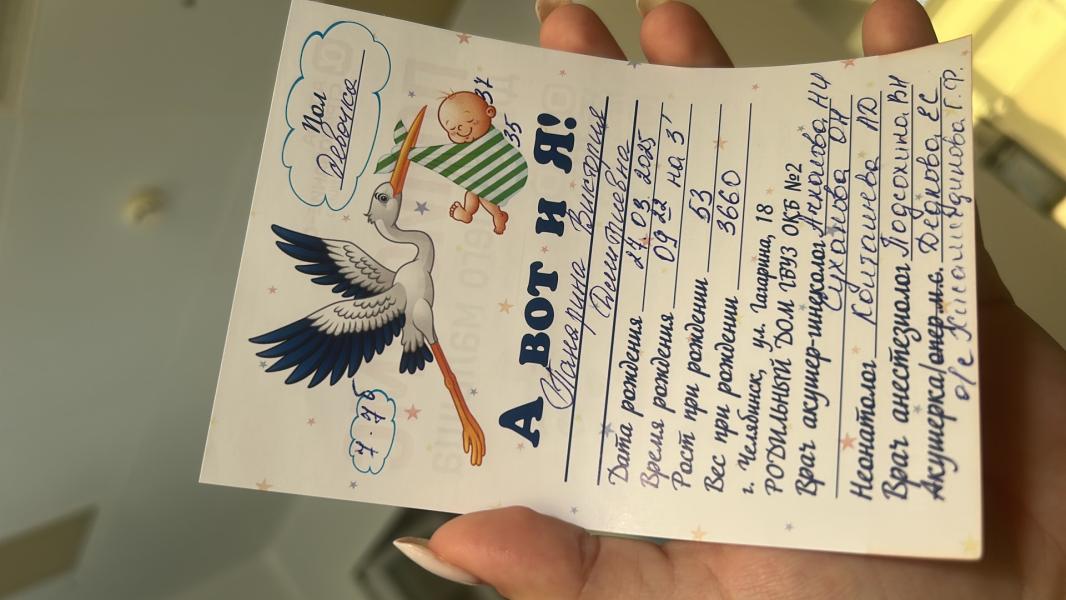 Пол
девочка
7-7б
37
35
А ВОТ и Я!
Виктория
Дмитриевна
Дата рождения 24 03 2025
Время рождения 09 22 на 3
Рост при рождении 53
Вес при рождении 3660
г. Челябинск, ул. Гагарина, 18
РОДИЛЬНЫЙ ДОМ ГБУЗ ОКБ №2
Врач акушер-гинеколог НИ
Суханова ОН
Неонатолог ЛД
Врач анестезиолог Подсохина ВН
Акушерка/опер.м.с. Дедкова ЕС
о/с Г.Ф.